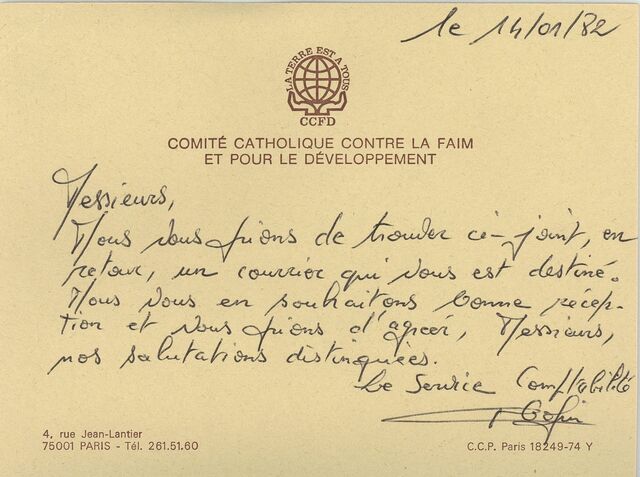 le 14/01/82
LA TERRE EST A TOUS
CCFD
COMITÉ CATHOLIQUE CONTRE LA FAIM
ET POUR LE DÉVELOPPEMENT
Messieurs,
Nous vous prions de trouver ci-joint, en
retour, un courrier qui vous est destiné.
Nous vous en souhaitons bonne récep-
tion et vous prions d'agréer, Messieurs,
nos salutations distinguées.
Le Service Comptabilité
4, rue Jean-Lantier
75001 PARIS - Tél. 261.51.60
C.C.P. Paris 18249-74 Y